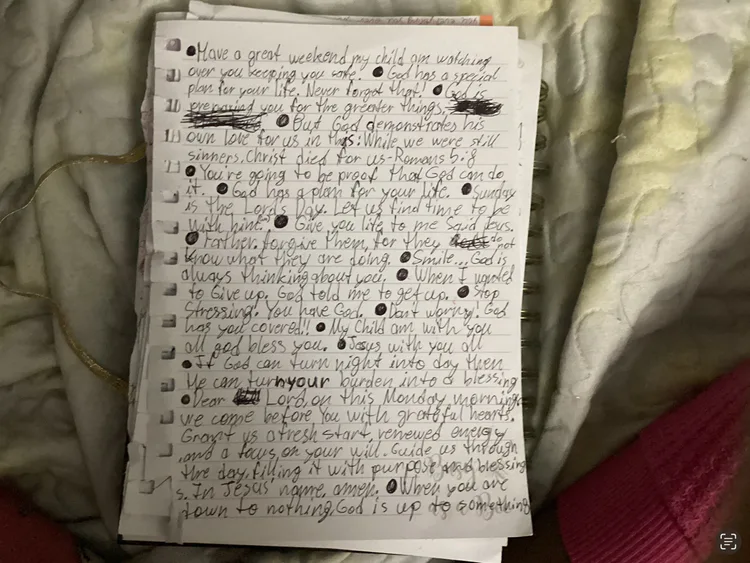 ● Have a great weekend my child am watching
over you keeping you safe. ● God has a special
plan for your life. Never forgot that! ● God is
preparing you for the greater things.
● But God demonstrates his
own love for us in this: While we were still
sinners, Christ died for us-Romans 5:8
● You're going to be proof that God can do
it. ● God has a plan for your life. ● Sunday
is the Lord's Day. Let us find time to be
with him. ● Give you life to me said
● Farther, forgive them, for they do not
know what they are doing. ● Smile... God is
always thinking about you. ● When I wanted
to Give up. God told me to get up. ● Stop
Stressing. You have God. ● Don't worry! God
has you covered!! ● My Child am with you
all god bless you. ● Jesus with you all
● If God can turn night into day then
He can turn your burden into a blessing
● Dear Lord, on this Monday morning,
we come before You with grateful hearts.
Grant us a fresh start, renewed energy
,and a focus on your will. Guide us through
the day, filling it with purpose and blessing
s. In Jesus' name, amen. ● When you are
down to nothing, God is up to something